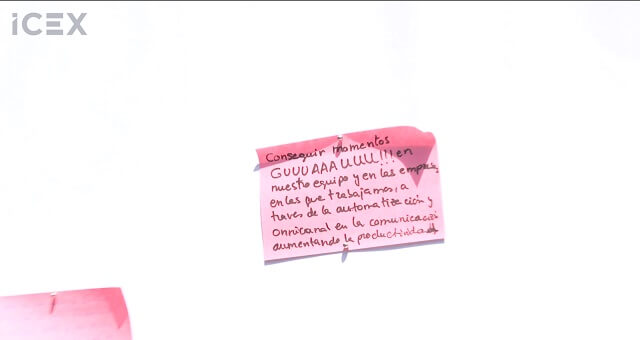 iCEX
Conseguir momentos
GUUUAAAUUUU!!! en
nuestro equipo y en las empresas
en las que trabajamos, a
través de la automatización y
onnicanal en la comunicación
aumentando la productividad